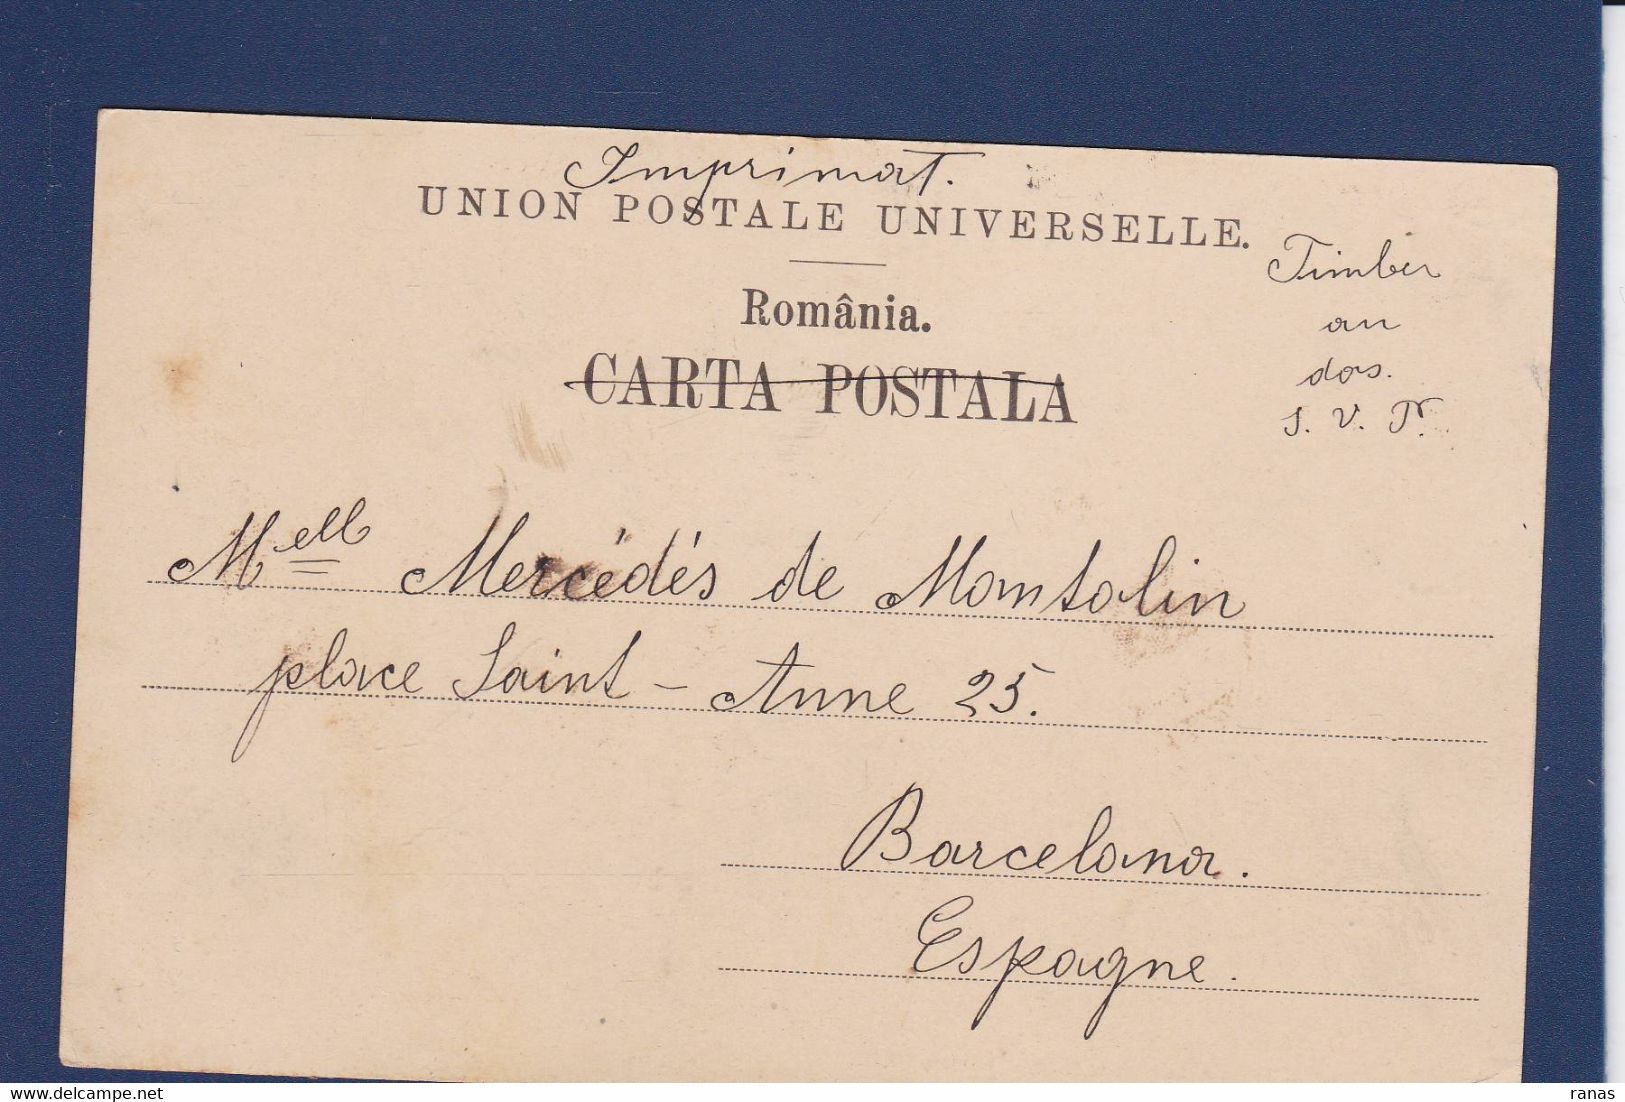 Imprimat.
UNION POSTALE UNIVERSELLE.
România.
CARTA POSTALA
Timber
au
dos.
S. V. P.
Melle Mercédés de Montolin
place Saint-Anne 25.
Barcelona.
Espagne.
https://www.delcampe.net
ranas